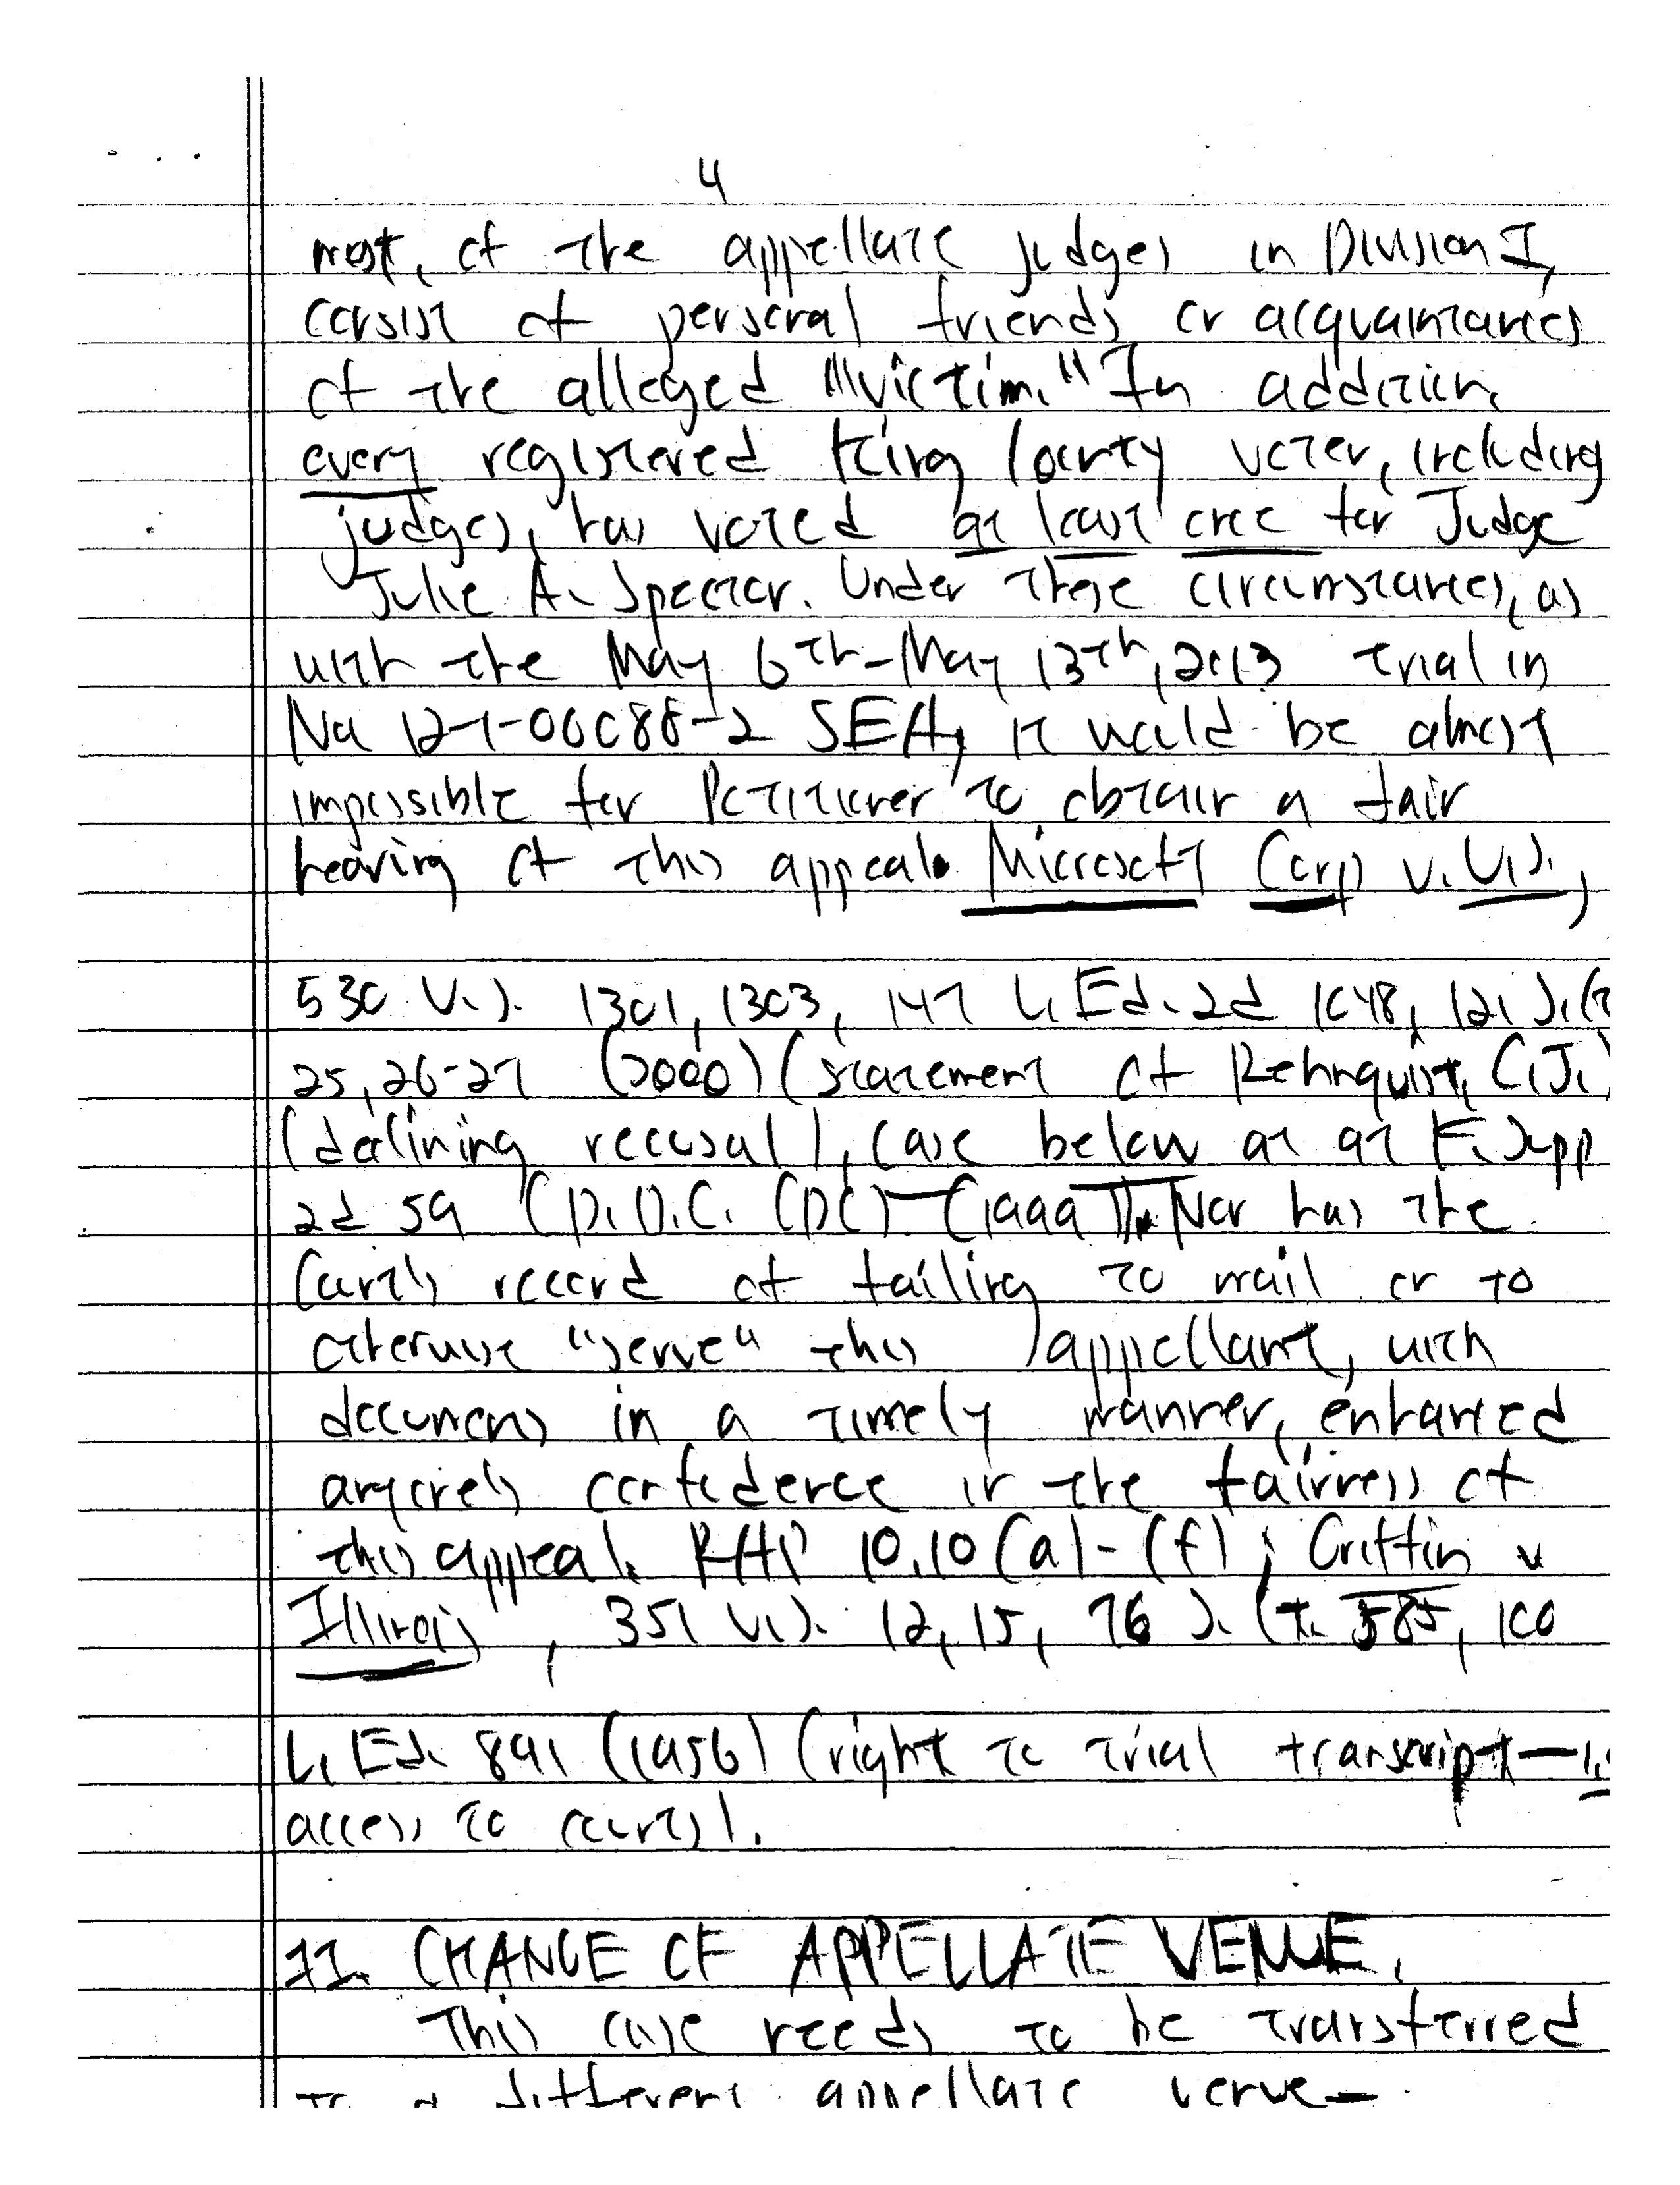 4
most, of the appellate judges in Division I,
consist of personal friends or acquaintances
of the alleged "victim." In addition,
every registered King County voter, including
judges, has voted at least once for Judge
Julie A. Spector. Under these circumstances, as
with the May 6th-May 13th, 2013 trial in
No. 12-1-00088-2 SEA, it would be almost
impossible for Petitioner to obtain a fair
hearing of this appeal. Microsoft Corp v. U.S.,
530 U.S. 1301, 1303, 147 L. Ed. 2d 1048, 121 S. Ct
25, 26-27 (2000) (statement of Rehnquist, C.J.)
(declining recusal), case below at 97 F. Supp
2d 59 (D.D.C. (DC) (1999)). Nor has the
Court's record of failing to mail or to
otherwise "serve" this appellant, with
documens in a timely manner, enhanced
anyone's confidence in the fairness of
this appeal. RAP 10.10 (a)-(f); Griffin v
Illinois, 351 U.S. 12, 15, 76 S. Ct. 585, 100
L. Ed. 891 (1956) (right to trial transcript—
access to courts).
II. CHANGE OF APPELLATE VENUE.
This case needs to be transferred
to a different appellate venue—